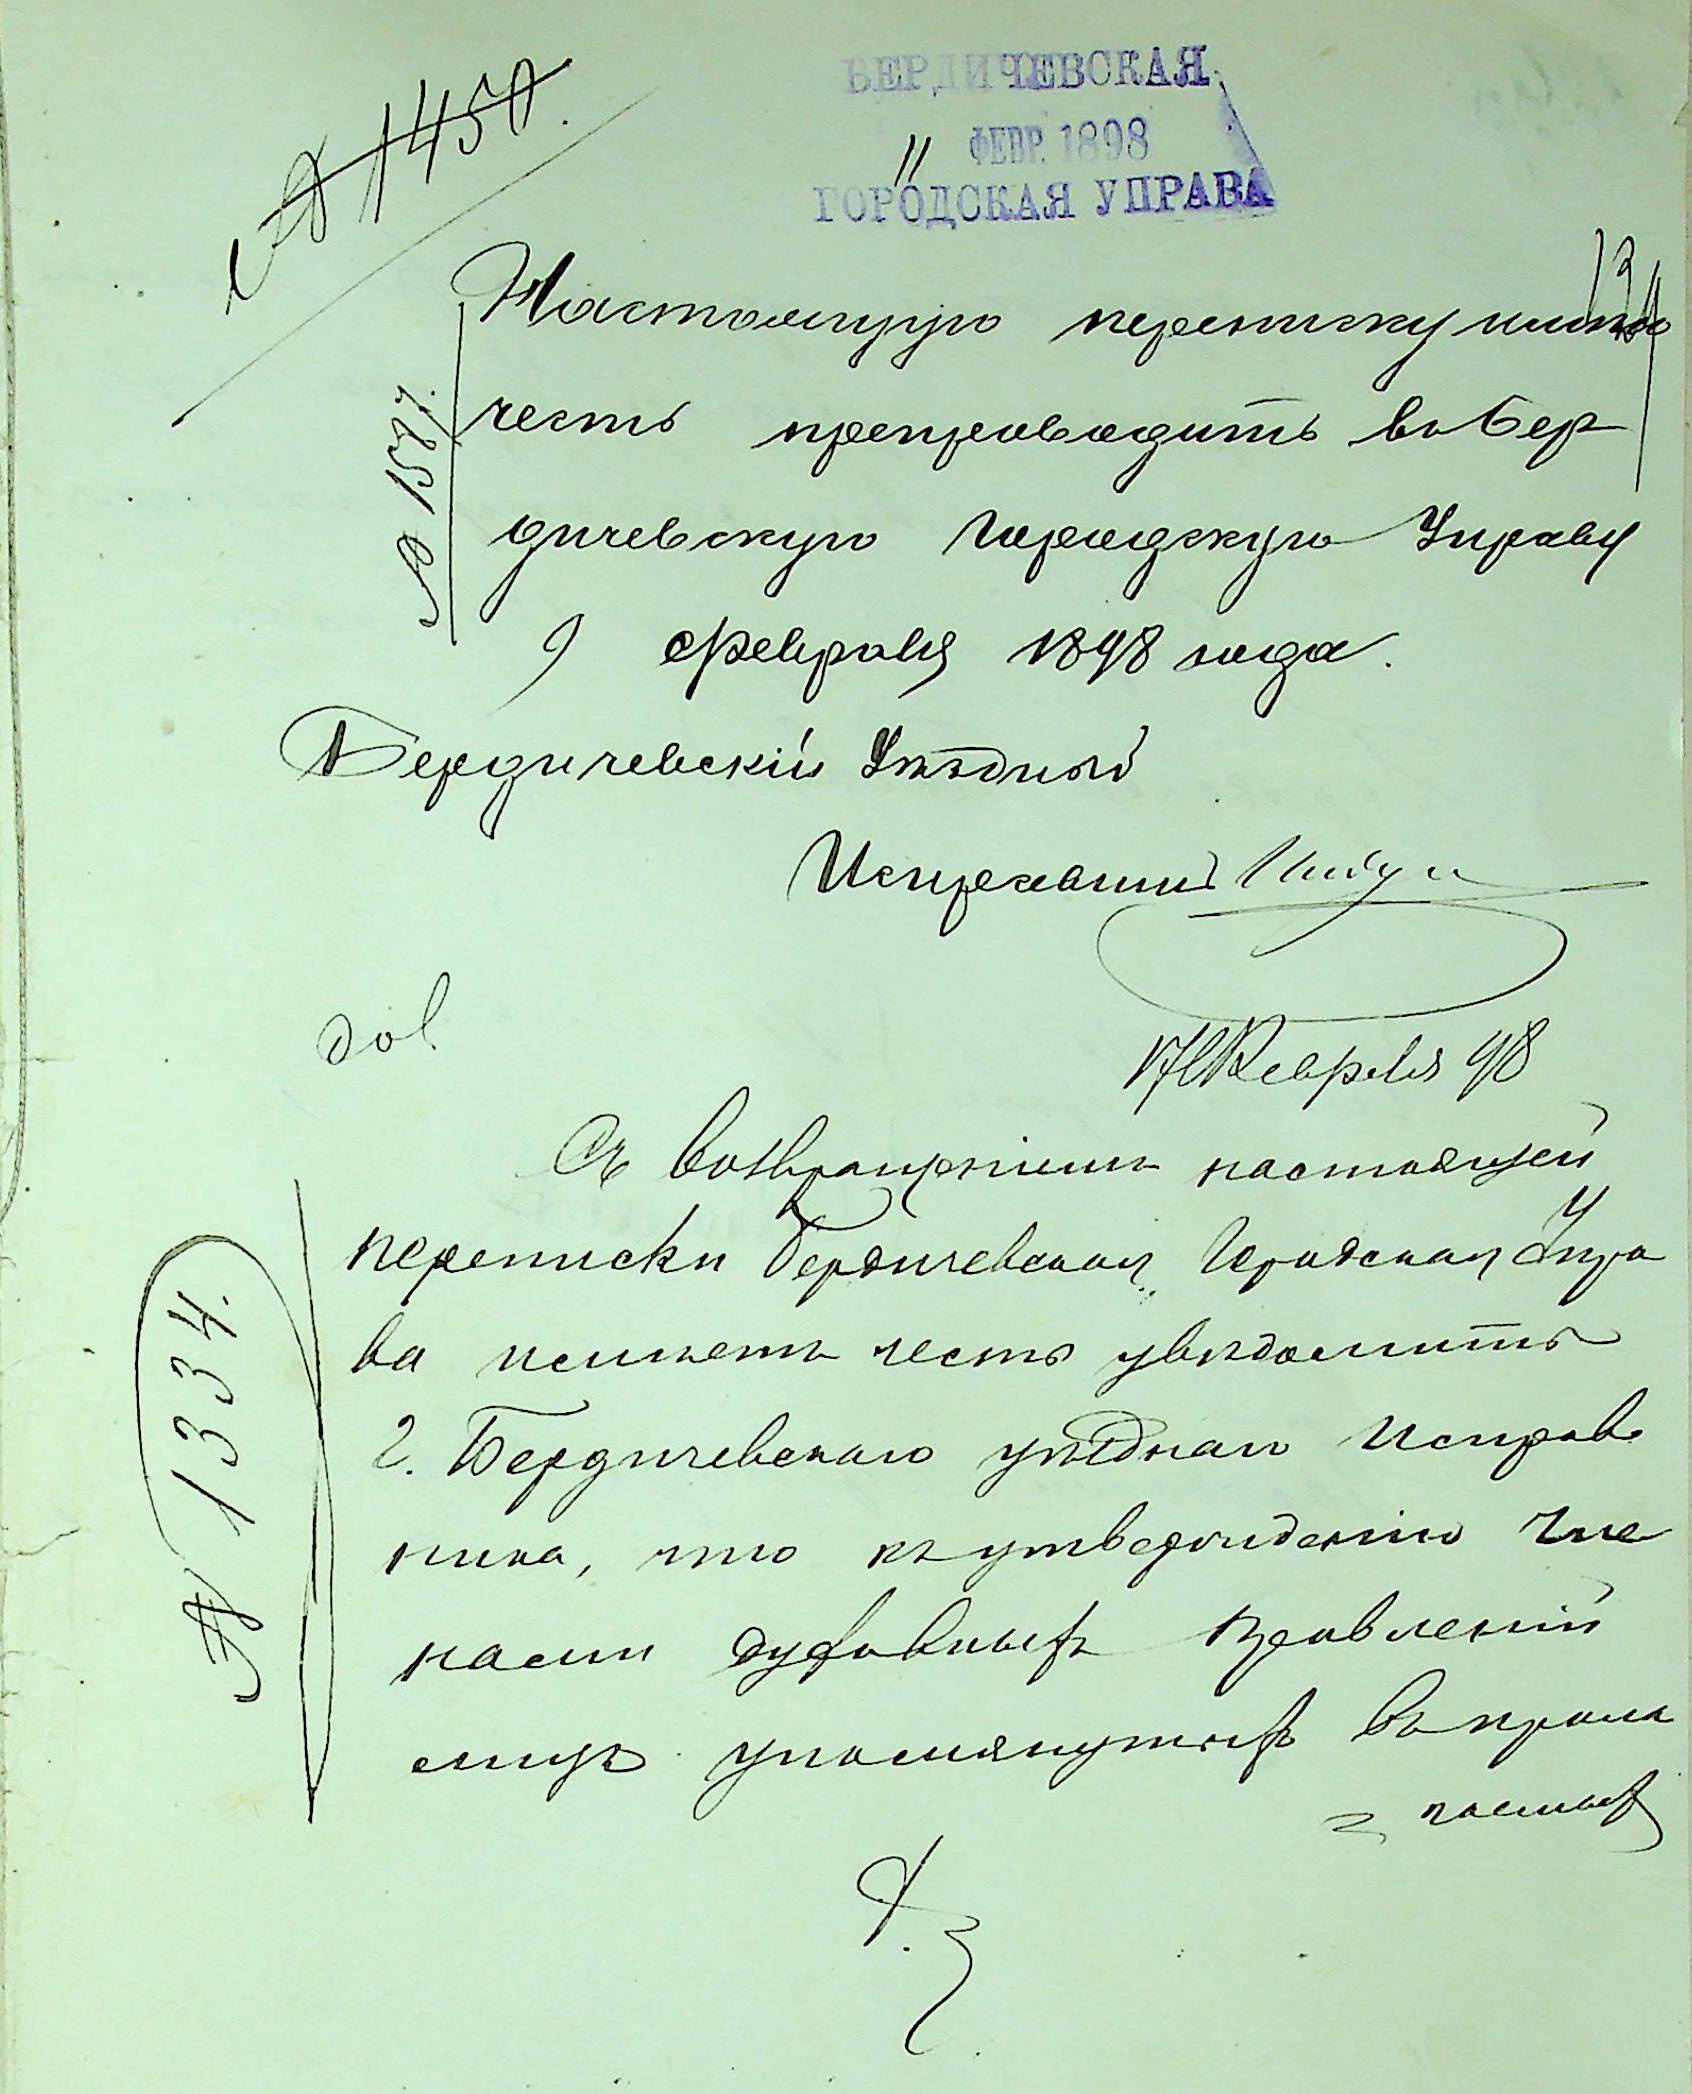 № 1450.
БЕРДИЧЕВСКАЯ
11 ФЕВР. 1898
ГОРОДСКАЯ УПРАВА
13
Настоящую переписку имѣю
№ 1587.
честь препроводить въ Бер
дичевскую Городскую Управу
9 Февраля 1898 года.
Бердичевскій Уѣздный
Исправникъ
17 Февраля 98
Съ возвращеніемъ настоящей
переписки Бердичевская Городская Упра
ва имѣетъ честь увѣдомить
№ 1334.
г. Бердичевскаго уѣзднаго Исправ
ника, что къ утвержденію Чле
нами духовныхъ правленій
лицъ упомянутыхъ въ